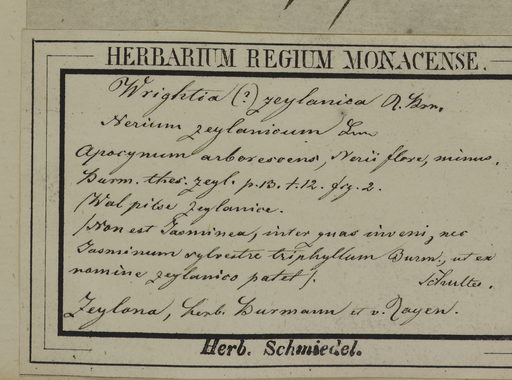 HERBARIUM REGIUM MONACENSE.
Wrightia (?) zeylanica R. Brn.
Nerium zeylanicum Lin
Apocynum arborescens, Nerii flore, minus.
Burm. thes. zeyl. p. 13. t. 12. fig. 2.
/Wal pitse zeylanice.
/Non est Jasminea, inter quas inveni, nec
Jasminum sylvestre triphyllum Burm., ut ex
nomine zeylanico patet/.
Schultes.
Zeylona, herb. Burmann et v. Royen.
Herb. Schmiedel.